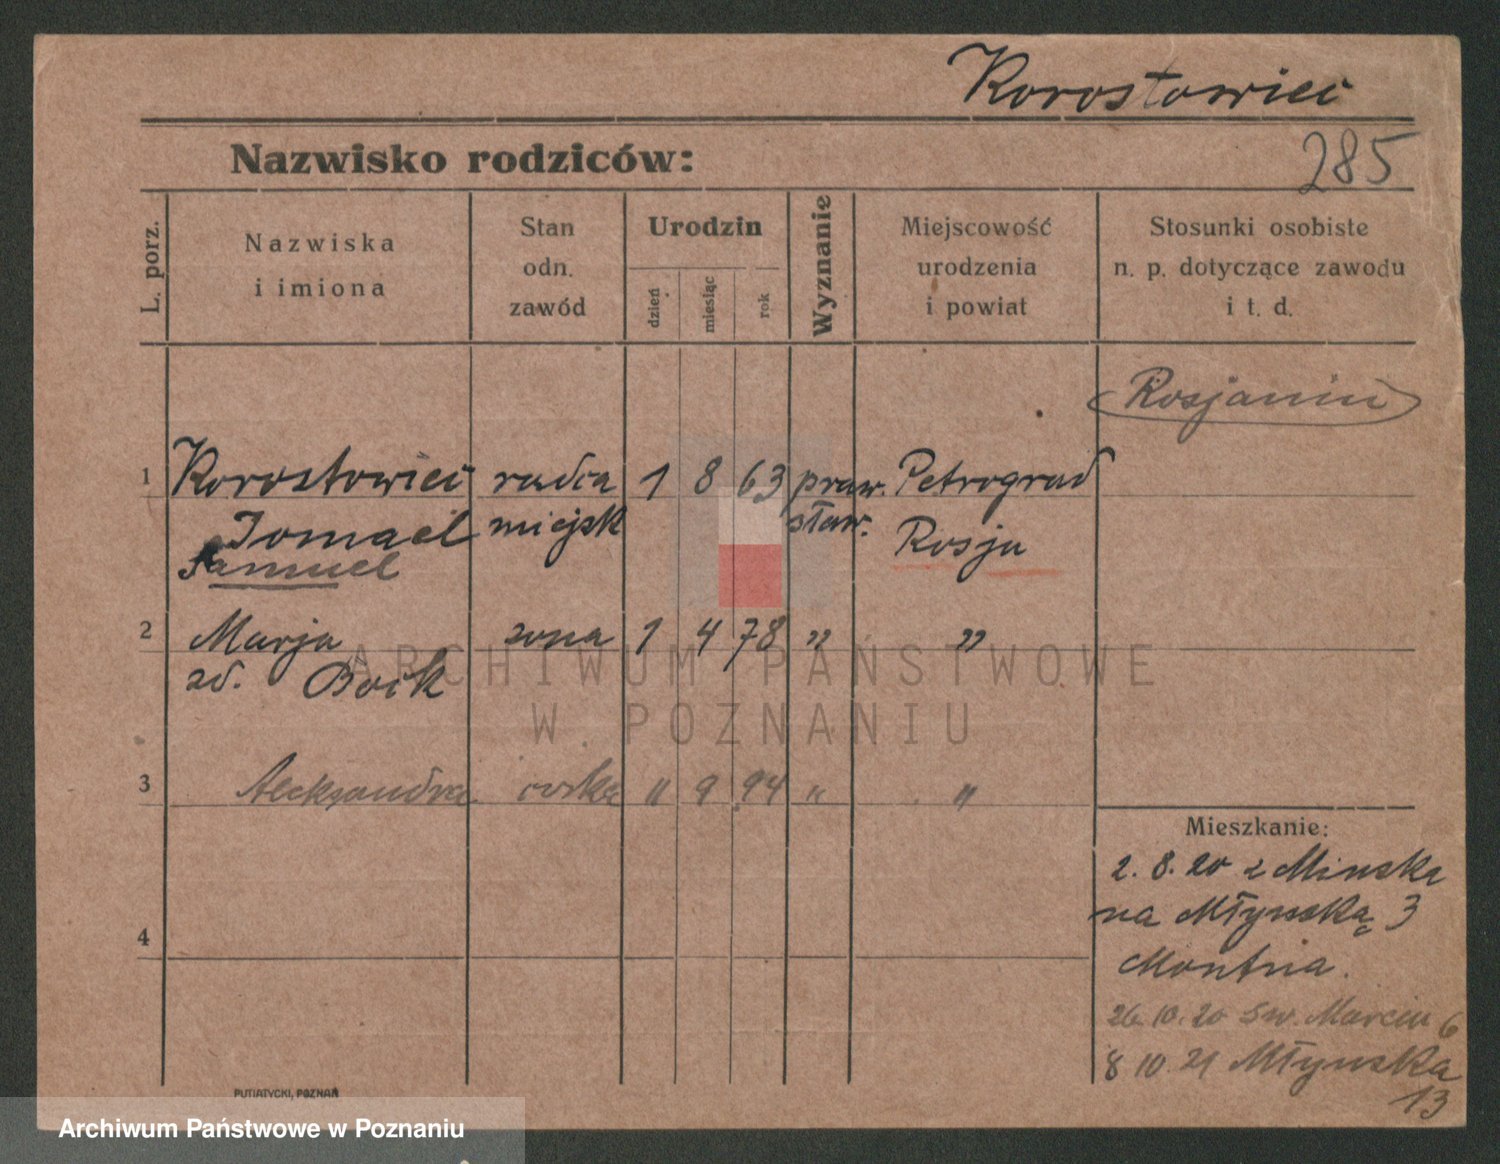 Korostowieć
Nazwisko rodziców:
285
L. porz.
Nazwiska
i imiona
Stan
odn.
zawód
Urodzin
dzień
miesiąc
rok
Wyznanie
Miejscowość
urodzenia
i powiat
Stosunki osobiste
n. p. dotyczące zawodu
i t. d.
Rosjanin
1 Korostowieć radca 1 8 63 praw. Petrograd
miejsk sław. Rosja
Samuel
2 Marja żona 1 4 78 " "
zd.
3 Aleksandra córka " 9 94 " "
4
Mieszkanie:
2. 8. 20 z Minska
na Młyńską 3
26. 10. 20 Św. Marcin 6
8 10. 21 Młyńska
13
PUTIATYCKI, POZNAŃ
ARCHIWUM PAŃSTWOWE
W POZNANIU
Archiwum Państwowe w Poznaniu